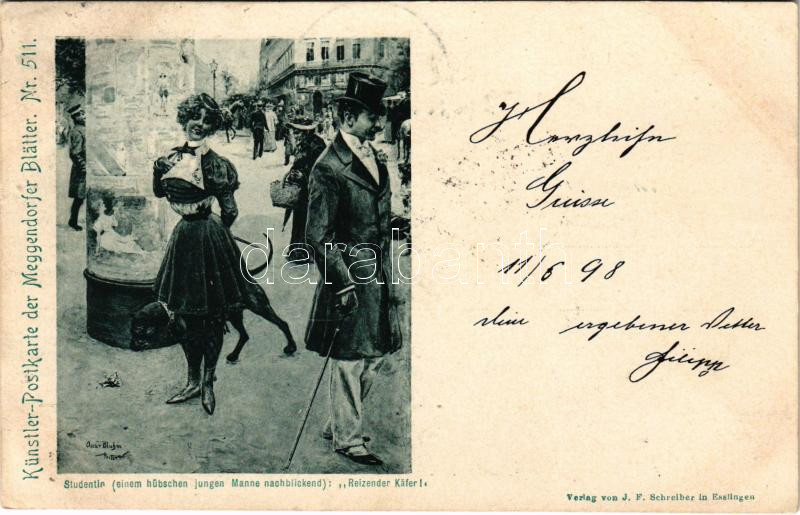 Künstler-Postkarte der Meggendorfer Blätter. Nr. 511.
Herzliche
Grüsse
11/6 98
dein ergebener Vetter
Filipp
darabanth
Oscar Bluhm
Studentin (einem hübschen jungen Manne nachblickend): „Reizender Käfer!“
Verlag von J. F. Schreiber in Esslingen